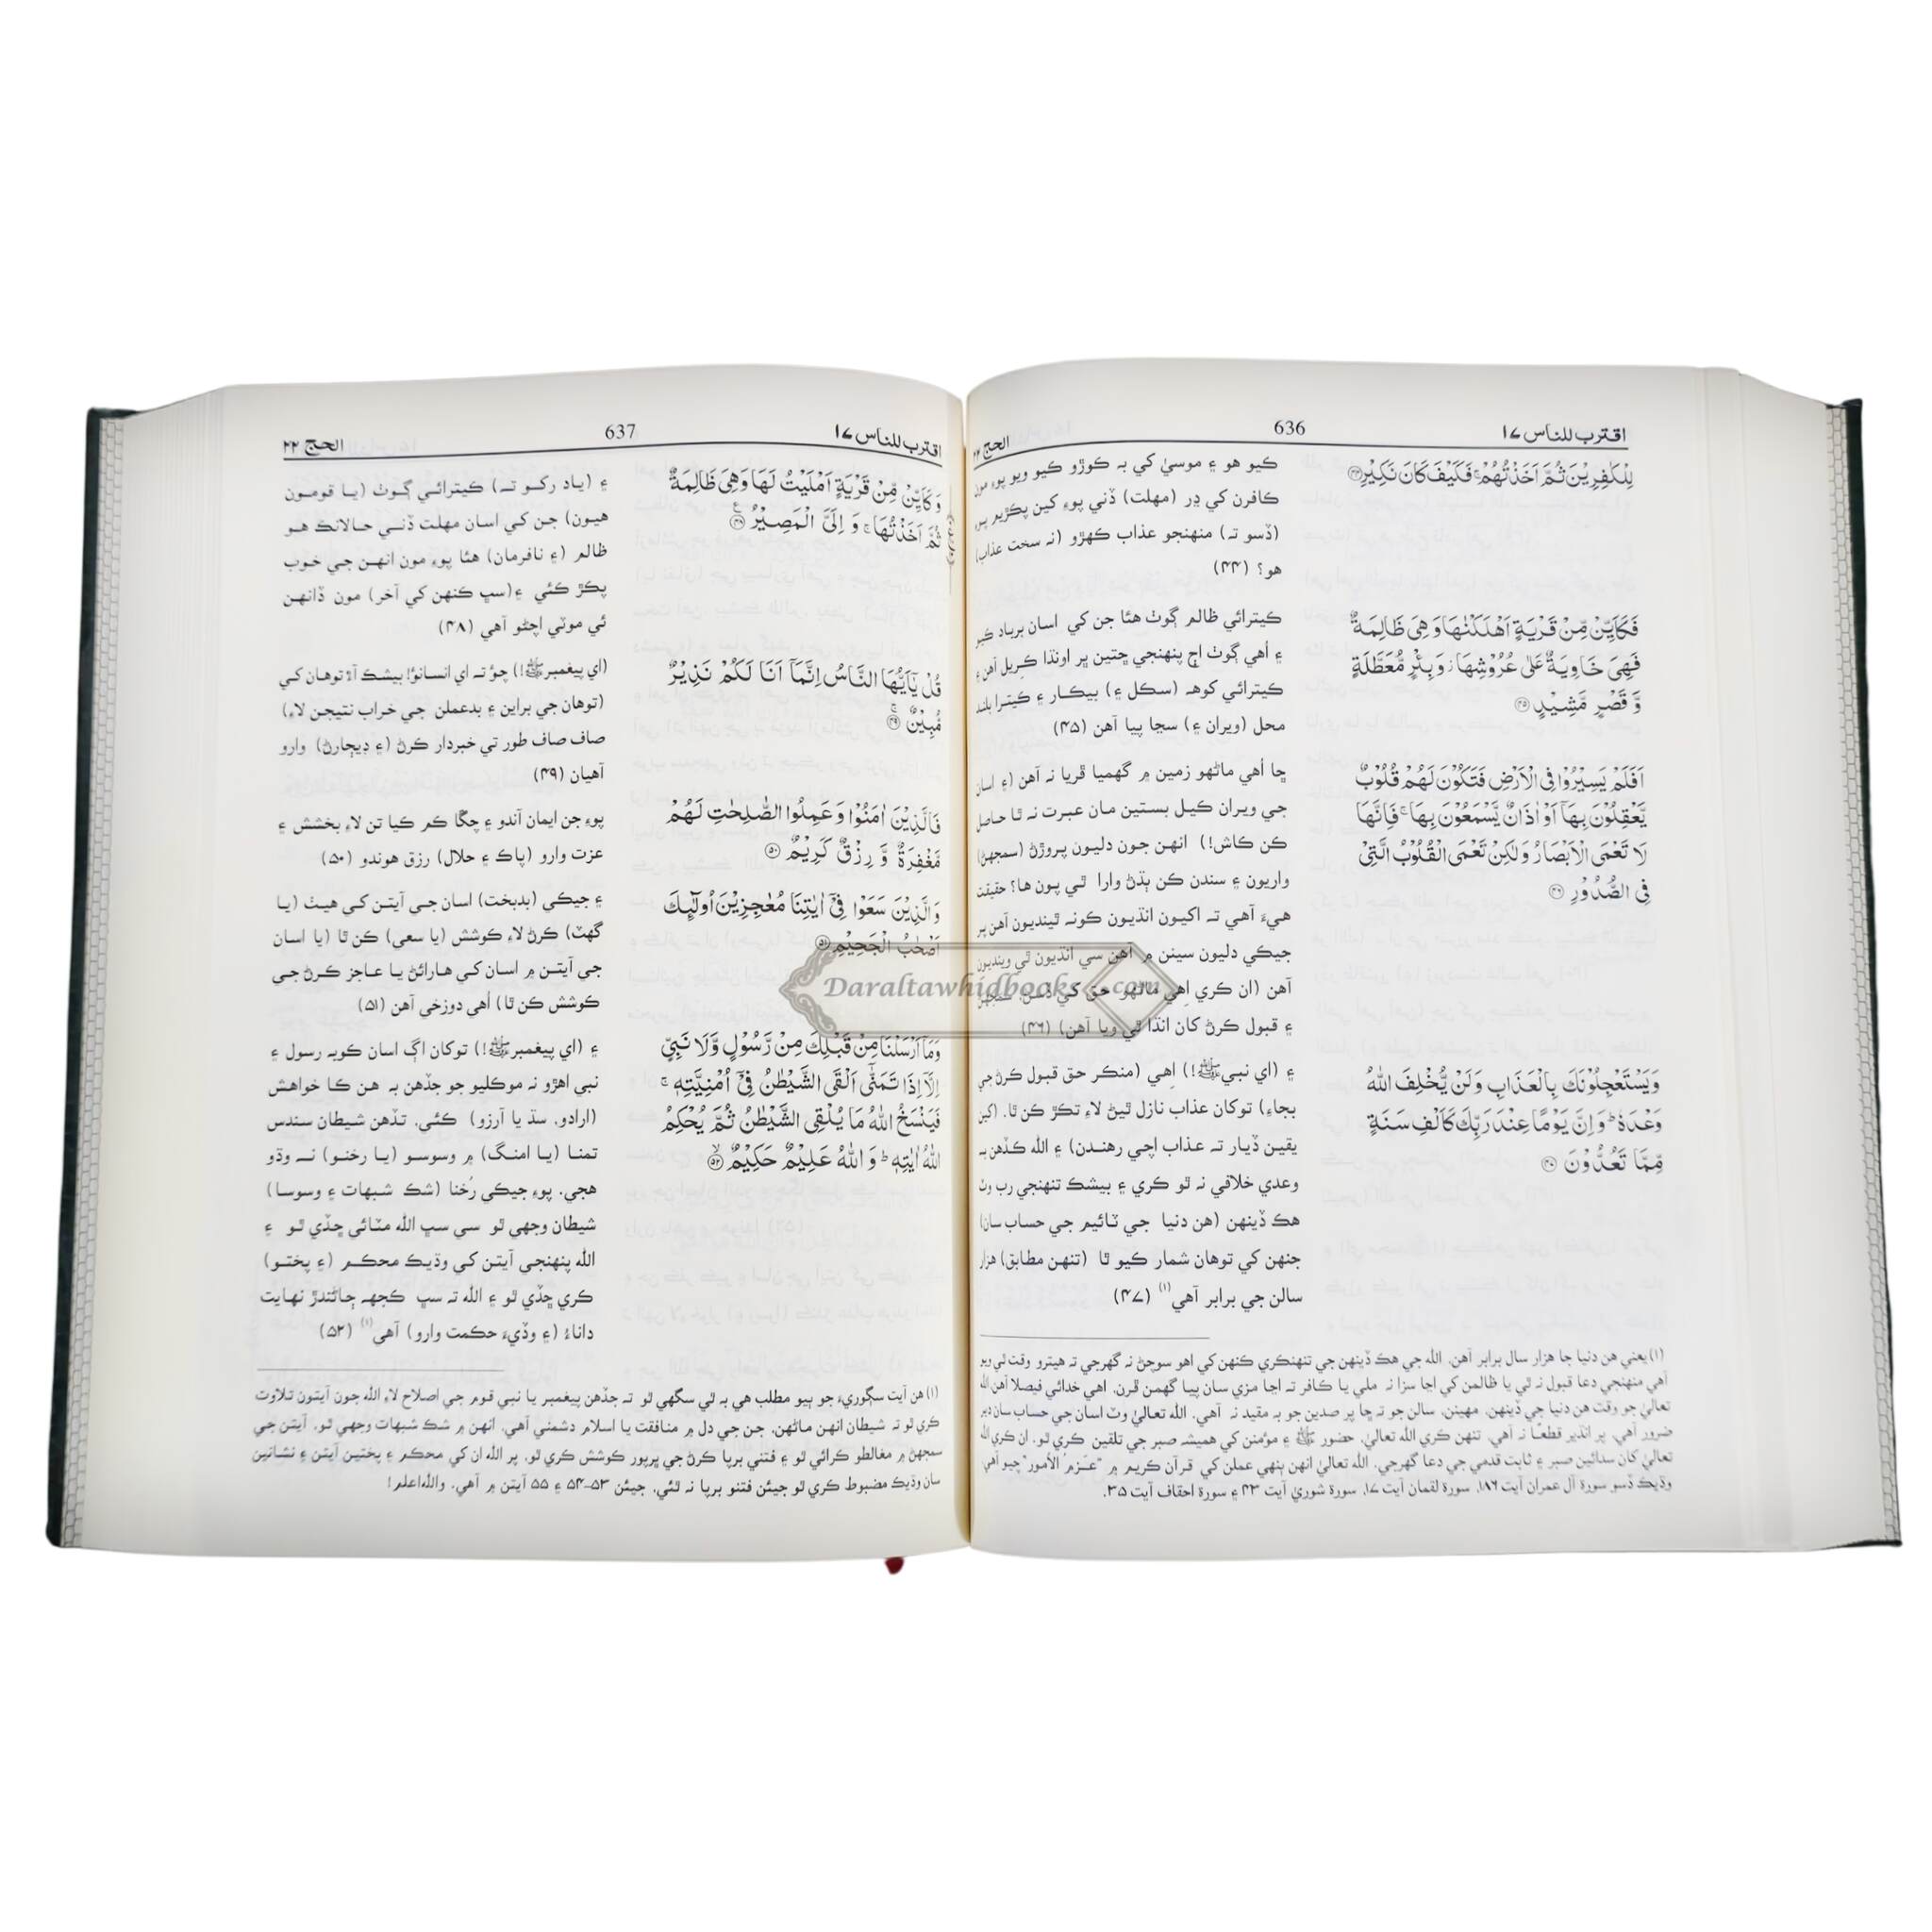 اقترب للناس ۱۷
636
الحج ۲۲
لِلْكٰفِرِيْنَ ثُمَّ اَخَذْتُهُمْ ۚ فَكَيْفَ كَانَ نَكِيْرِ ۴۴
فَكَاَيِّنْ مِّنْ قَرْيَةٍ اَهْلَكْنٰهَا وَهِيَ ظَالِمَةٌ
فَهِيَ خَاوِيَةٌ عَلٰى عُرُوْشِهَا ۡ وَبِئْرٍ مُّعَطَّلَةٍ
وَّ قَصْرٍ مَّشِيْدٍ ۴۵
اَفَلَمْ يَسِيْرُوْا فِي الْاَرْضِ فَتَكُوْنَ لَهُمْ قُلُوْبٌ
يَّعْقِلُوْنَ بِهَاۤ اَوْ اٰذَانٌ يَّسْمَعُوْنَ بِهَا ۚ فَاِنَّهَا
لَا تَعْمَى الْاَبْصَارُ وَلٰكِنْ تَعْمَى الْقُلُوْبُ الَّتِيْ
فِي الصُّدُوْرِ ۴۶
وَيَسْتَعْجِلُوْنَكَ بِالْعَذَابِ وَلَنْ يُّخْلِفَ اللّٰهُ
وَعْدَهٗ ؕ وَاِنَّ يَوْمًا عِنْدَ رَبِّكَ كَاَلْفِ سَنَةٍ
مِّمَّا تَعُدُّوْنَ ۴۷
ڪيو هو ۽ موسيٰ کي بہ ڪوڙو ڪيو ويو پوءِ مون
ڪافرن کي ڍر (مهلت) ڏني پوءِ کين پڪڙيم پوءِ
(ڏسو تہ) منهنجو عذاب ڪهڙو (نہ سخت عذاب)
هو؟ (۴۴)
ڪيترائي ظالم ڳوٺ هئا جن کي اسان برباد ڪيو
۽ اُهي ڳوٺ اڄ پنهنجي ڇتين ڀر اونڌا ڪِريل آهن ۽
ڪيترائي کوهہ (سڪل ۽) بيڪار ۽ ڪيترا بلند
محل (ويران ۽) سڃا پيا آهن (۴۵)
ڇا اُهي ماڻهو زمين ۾ گهميا ڦريا نہ آهن (۽ اسان
جي ويران ڪيل بستين مان عبرت نہ ٿا حاصل
ڪن ڪاش!) انهن جون دليون پروڙڻ (سمجهڻ)
واريون ۽ سندن ڪن ٻڌڻ وارا ٿي پون ها؟ حقيقت
هيءَ آهي تہ اکيون انڌيون ڪونہ ٿينديون آهن پر
جيڪي دليون سينن ۾ آهن سي انڌيون ٿي وينديون
آهن (ان ڪري اِهي ماڻهو حق کي ڏسڻ، سمجهڻ
۽ قبول ڪرڻ کان انڌا ٿي ويا آهن) (۴۶)
۽ (اي نبيﷺ!) اِهي (منڪر حق قبول ڪرڻ جي
بجاءِ) توکان عذاب نازل ٿيڻ لاءِ تڪڙ ڪن ٿا. (کين
يقين ڏيار تہ عذاب اچي رهندن) ۽ الله ڪڏهن بہ
وعدي خلافي نہ ٿو ڪري ۽ بيشڪ تنهنجي رب وٽ
هڪ ڏينهن (هن دنيا جي ٽائيم جي حساب سان)
جنهن کي توهان شمار ڪيو ٿا (تنهن مطابق) هزار
سالن جي برابر آهي(۱) (۴۷)
(۱) يعني هن دنيا جا هزار سال برابر آهن. الله جي هڪ ڏينهن جي تنهنڪري ڪنهن کي اهو سوچڻ نہ گهرجي تہ هيترو وقت ٿي ويو
آهي منهنجي دعا قبول نہ ٿي يا ظالمن کي اڃا سزا نہ ملي يا ڪافر تہ اڃا مزي سان پيا گهمن ڦرن. اهي خدائي فيصلا آهن الله
تعاليٰ جو وقت هن دنيا جي ڏينهن، مهينن، سالن جو تہ ڇا پر صدين جو بہ مقيد نہ آهي. الله تعاليٰ وٽ اسان جي حساب سان دير
ضرور آهي. پر انڌير قطعًا نہ آهي. تنهن ڪري الله تعاليٰ، حضور ﷺ ۽ مؤمنن کي هميشہ صبر جي تلقين ڪري ٿو. ان ڪري الله
تعاليٰ کان سدائين صبر ۽ ثابت قدمي جي دعا گهرجي. الله تعاليٰ انهن ٻنهي عملن کي قرآن ڪريم ۾ "عزم الأمور" چيو آهي.
وڌيڪ ڏسو سورة آل عمران آيت ۱۸۶، سورة لقمان آيت ۱۷، سورة شوريٰ آيت ۴۳ ۽ سورة احقاف آيت ۳۵.
اقترب للناس ۱۷
637
الحج ۲۲
وَكَاَيِّنْ مِّنْ قَرْيَةٍ اَمْلَيْتُ لَهَا وَهِيَ ظَالِمَةٌ
ثُمَّ اَخَذْتُهَا ۚ وَ اِلَيَّ الْمَصِيْرُ ۴۸
قُلْ يٰۤاَيُّهَا النَّاسُ اِنَّمَاۤ اَنَا لَكُمْ نَذِيْرٌ
مُّبِيْنٌ ۴۹
فَالَّذِيْنَ اٰمَنُوْا وَعَمِلُوا الصّٰلِحٰتِ لَهُمْ
مَّغْفِرَةٌ وَّ رِزْقٌ كَرِيْمٌ ۵۰
وَالَّذِيْنَ سَعَوْا فِيْۤ اٰيٰتِنَا مُعٰجِزِيْنَ اُولٰٓئِكَ
اَصْحٰبُ الْجَحِيْمِ ۵۱
وَمَاۤ اَرْسَلْنَا مِنْ قَبْلِكَ مِنْ رَّسُوْلٍ وَّلَا نَبِيٍّ
اِلَّاۤ اِذَا تَمَنّٰىۤ اَلْقَى الشَّيْطٰنُ فِيْۤ اُمْنِيَّتِهٖ ۚ
فَيَنْسَخُ اللّٰهُ مَا يُلْقِى الشَّيْطٰنُ ثُمَّ يُحْكِمُ
اللّٰهُ اٰيٰتِهٖ ؕ وَ اللّٰهُ عَلِيْمٌ حَكِيْمٌ ۵۲
۽ (ياد رکو تہ) ڪيترائي ڳوٺ (يا قومون
هيون) جن کي اسان مهلت ڏني حالانڪ هو
ظالم (۽ نافرمان) هئا پوءِ مون انهن جي خوب
پڪڙ ڪئي ۽(سڀ ڪنهن کي آخر) مون ڏانهن
ئي موٽي اچڻو آهي (۴۸)
(اي پيغمبرﷺ!) چؤ تہ اي انسانؤ! بيشڪ آءٌ توهان کي
(توهان جي براين ۽ بدعملن جي خراب نتيجن لاءِ)
صاف صاف طور تي خبردار ڪرڻ (۽ ڊيڄارڻ) وارو
آهيان (۴۹)
پوءِ جن ايمان آندو ۽ چڱا ڪم ڪيا تن لاءِ بخشش ۽
عزت وارو (پاڪ ۽ حلال) رزق هوندو (۵۰)
۽ جيڪي (بدبخت) اسان جي آيتن کي هيٺ (يا
گهٽ) ڪرڻ لاءِ ڪوشش (يا سعي) ڪن ٿا (يا اسان
جي آيتن ۾ اسان کي هارائڻ يا عاجز ڪرڻ جي
ڪوشش ڪن ٿا) اُهي دوزخي آهن (۵۱)
۽ (اي پيغمبرﷺ!) توکان اڳ اسان ڪوبہ رسول ۽
نبي اهڙو نہ موڪليو جو جڏهن بہ هن ڪا خواهش
(ارادو، سڌ يا آرزو) ڪئي، تڏهن شيطان سندس
تمنا (يا امنگ) ۾ وسوسو (يا رخنو) نہ وڌو
هجي. پوءِ جيڪي رُخنا (شڪ شبهات ۽ وسوسا)
شيطان وجهي ٿو سي سڀ الله مٽائي ڇڏي ٿو ۽
الله پنهنجي آيتن کي وڌيڪ محڪم (۽ پختو)
ڪري ڇڏي ٿو ۽ الله تہ سڀ ڪجهہ ڄاڻندڙ نهايت
داناءُ (۽ وڏيءَ حڪمت وارو) آهي(۱) (۵۲)
(۱) هن آيت سڳوريءَ جو ٻيو مطلب هي بہ ٿي سگهي ٿو تہ جڏهن پيغمبر يا نبي قوم جي اصلاح لاءِ الله جون آيتون تلاوت
ڪري ٿو تہ شيطان انهن ماڻهن، جن جي دل ۾ منافقت يا اسلام دشمني آهي. انهن ۾ شڪ شبهات وجهي ٿو، آيتن جي
سمجهڻ ۾ مغالطو کرائي ٿو ۽ فتني برپا ڪرڻ جي ڀرپور ڪوشش ڪري ٿو. پر الله ان کي محڪم ۽ پختين آيتن ۽ نشانين
سان وڌيڪ مضبوط ڪري ٿو جيئن فتنو برپا نہ ٿئي. جيئن ۵۳-۵۴ ۽ ۵۵ آيتن ۾ آهي. والله اعلم!
Daraltawhidbooks.com